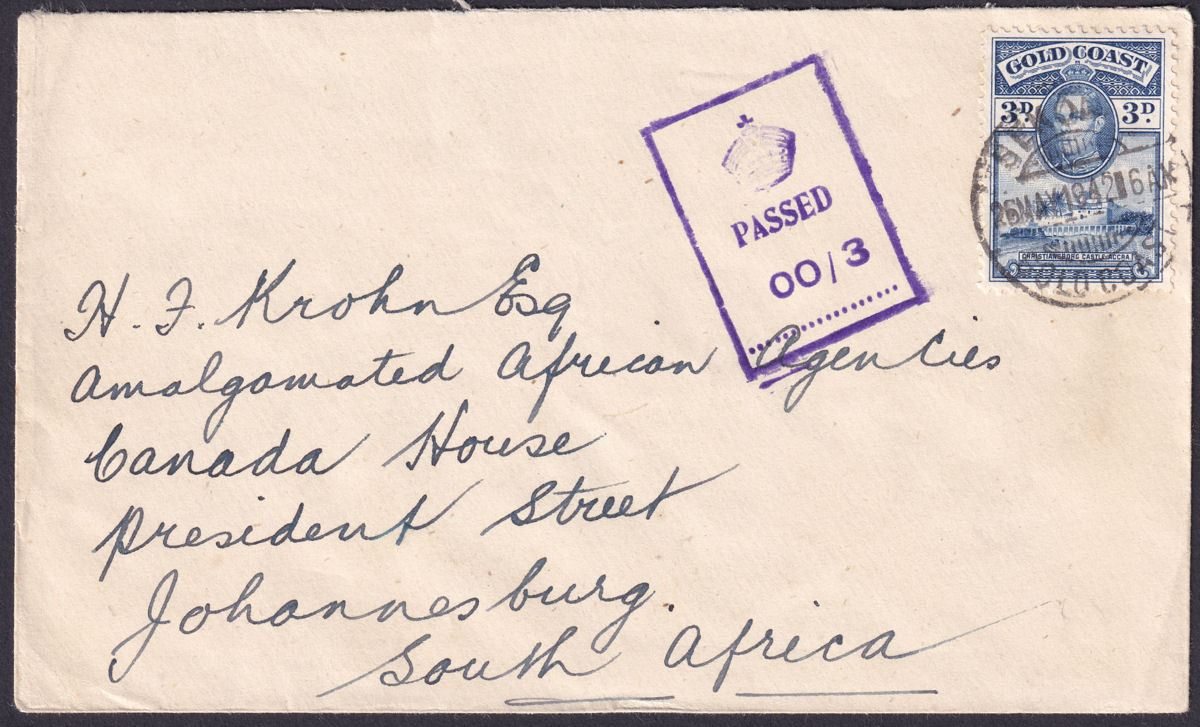 GOLD COAST
3D. 3D.
26MAY1942 6AM
CHRISTIANSBORG CASTLE, ACCRA
GOLD COAST
PASSED
OO/3
H. F. Krohn Esq
Amalgamated African Agencies
Canada House
President Street
Johannesburg.
South Africa